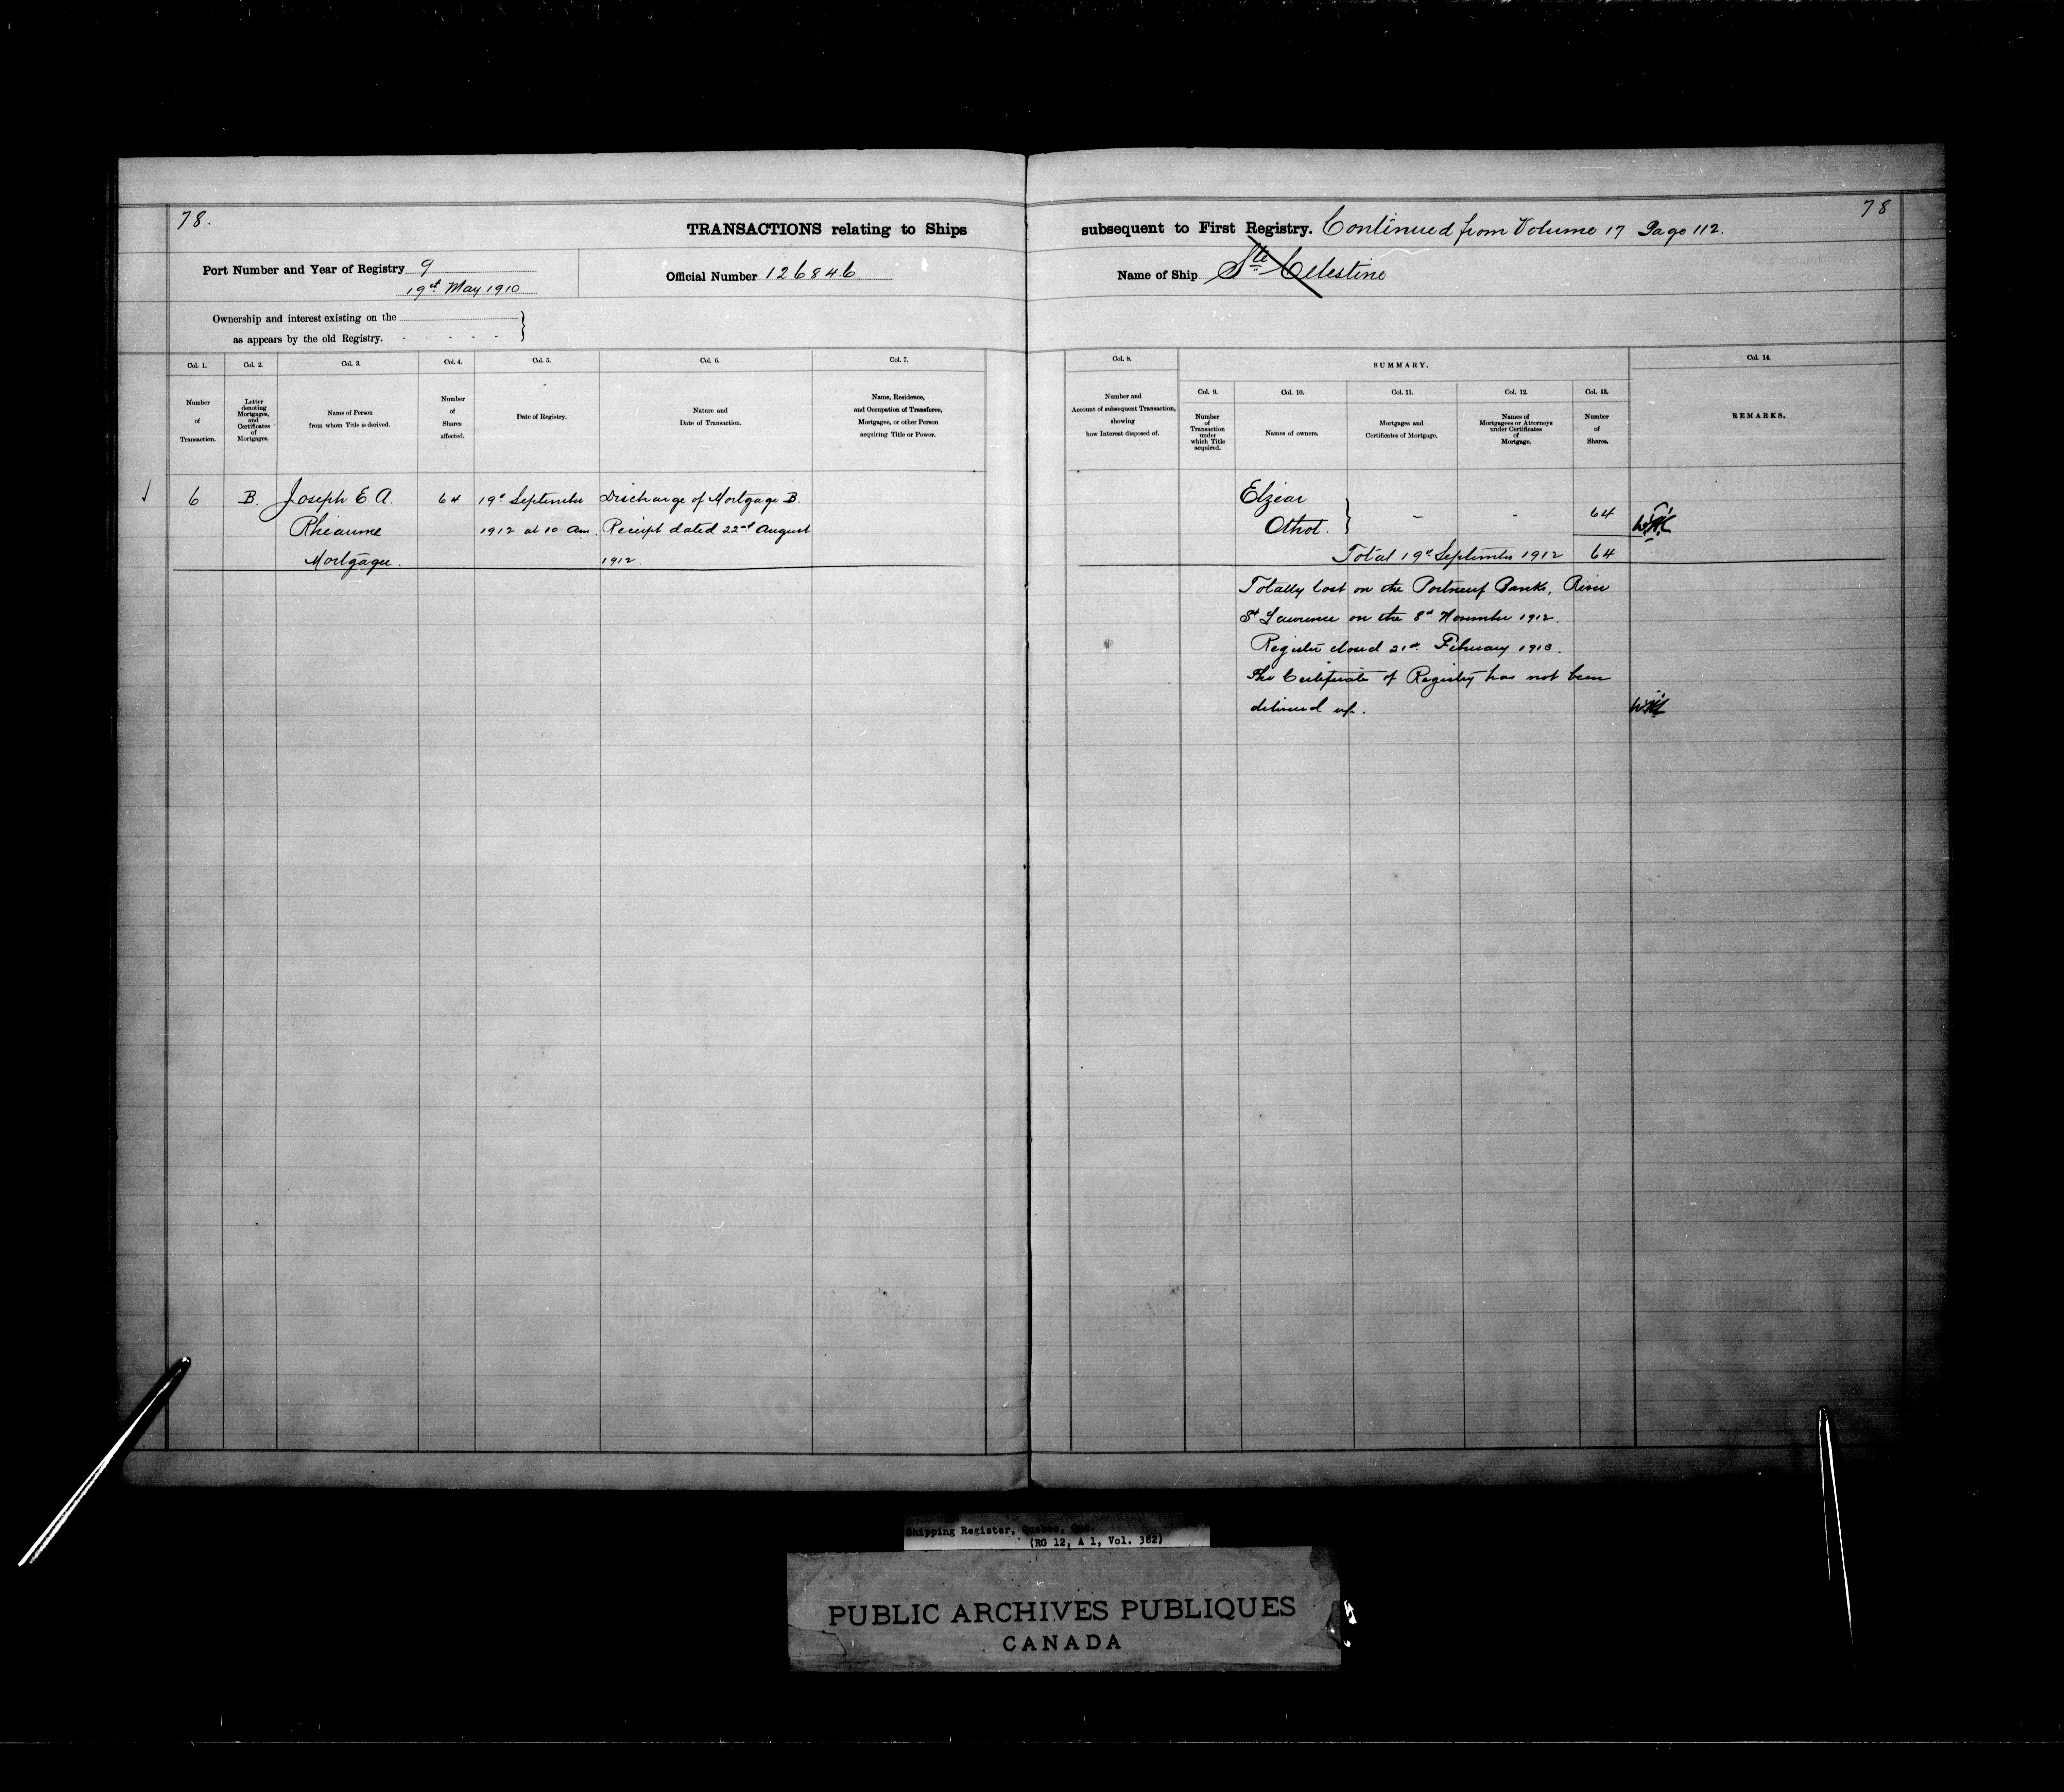 78.
TRANSACTIONS relating to Ships
subsequent to First Registry. Continued from Volume 17 Page 112.
78
Port Number and Year of Registry 9
19th May 1910.
Official Number 126846.
Name of Ship Ste Celestine
Ownership and interest existing on the
as appears by the old Registry.
Col. 1.
Number
of
Transaction.
Col. 2.
Letter
denoting
Mortgages,
and
Certificates
of
Mortgages.
Col. 3.
Name of Person
from whom Title is derived.
Col. 4.
Number
of
Shares
affected.
Col. 5.
Date of Registry.
Col. 6.
Nature and
Date of Transaction.
Col. 7.
Name, Residence,
and Occupation of Transferee,
Mortgagee, or other Person
acquiring Title or Power.
Col. 8.
Number and
Account of subsequent Transaction,
showing
how Interest disposed of.
SUMMARY.
Col. 9.
Number
of
Transaction
under
which Title
acquired.
Col. 10.
Names of owners.
Col. 11.
Mortgages and
Certificates of Mortgage.
Col. 12.
Names of
Mortgagees or Attorneys
under Certificates
of
Mortgage.
Col. 13.
Number
of
Shares.
Col. 14.
REMARKS.
6 B. Joseph E. A. 64 19th September Discharge of Mortgage B.
Rheaume 1912 at 10 am. Receipt dated 22nd August
Mortgagee. 1912.
Elzéar
Othot. } - - 64
Total 19th September 1912 64
Totally lost on the Portneuf Banks, River
St Lawrence on the 8th November 1912.
Register closed 21st February 1913.
The Certificate of Registry has not been
delivered up.
Shipping Register, Quebec, Que.
(RG 12, A 1, Vol. 382)
PUBLIC ARCHIVES PUBLIQUES
CANADA